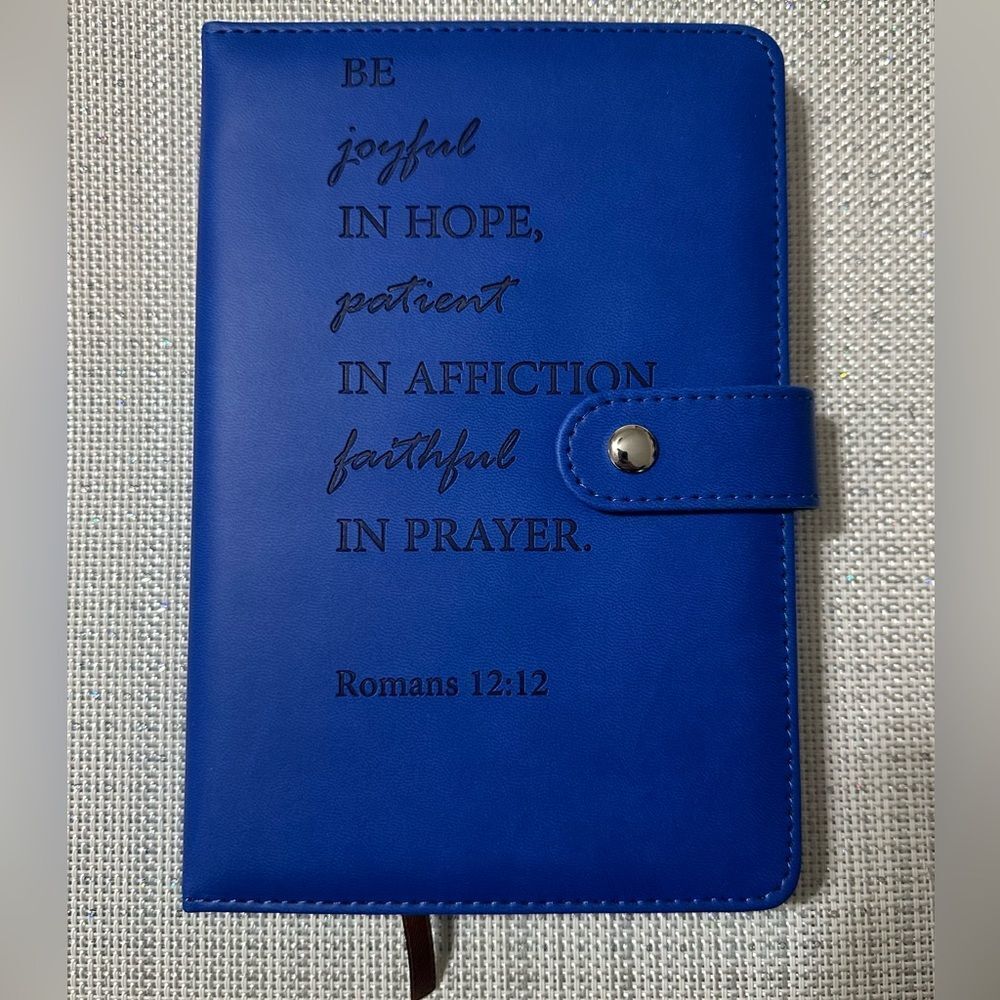 BE
joyful
IN HOPE,
patient
IN AFFICTION
faithful
IN PRAYER.
Romans 12:12